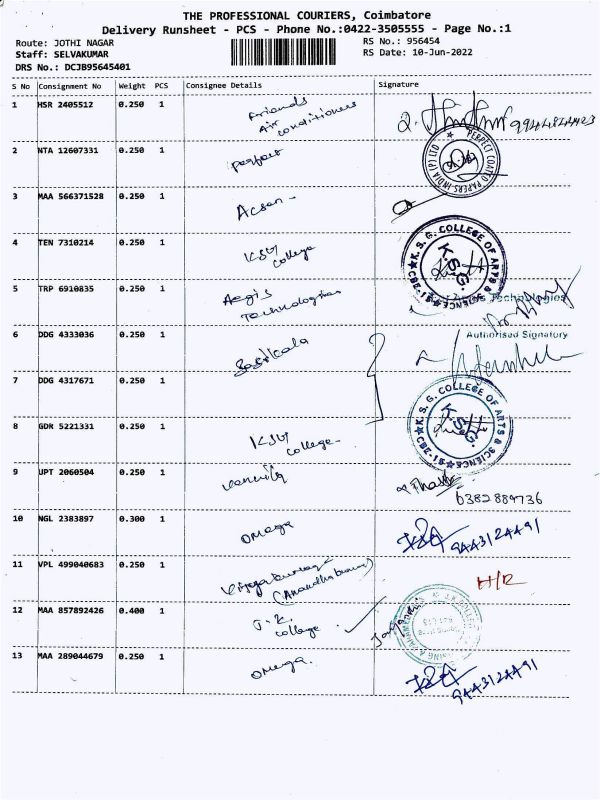 THE PROFESSIONAL COURIERS, Coimbatore
Delivery Runsheet - PCS - Phone No.:0422-3505555 - Page No.:1
Route: JOTHI NAGAR
RS No.: 956454
Staff: SELVAKUMAR
RS Date: 10-Jun-2022
DRS No.: DCJB95645401
S No Consignment No Weight PCS Consignee Details Signature
1 HSR 2405512 0.250 1 Friends
Air
conditioners
2 NTA 12607331 0.250 1 perfect
PERFECT COATED PAPERS INDIA (P) LTD
3 MAA 566371528 0.250 1 Acsen
4 TEN 7310214 0.250 1 KSG
college
K.S.G. COLLEGE OF ARTS & SCIENCE
K.S.G.
5 TRP 6910835 0.250 1 Aegis
Technologies
Technologies
6 DDG 4333036 0.250 1 Sasikala
Authorised Signatory
7 DDG 4317671 0.250 1
8 GDR 5221331 0.250 1 KSG
college
K.S.G. COLLEGE OF ARTS & SCIENCE
K.S.G.
9 JPT 2060504 0.250 1
6382889736
10 NGL 2383897 0.300 1 omega
9443124491
11 VPL 499040683 0.250 1 Vijayakumar
(Anandhakumar)
H/R
12 MAA 857892426 0.400 1 J.K.
college
13 MAA 289044679 0.250 1 omega.
9443124491